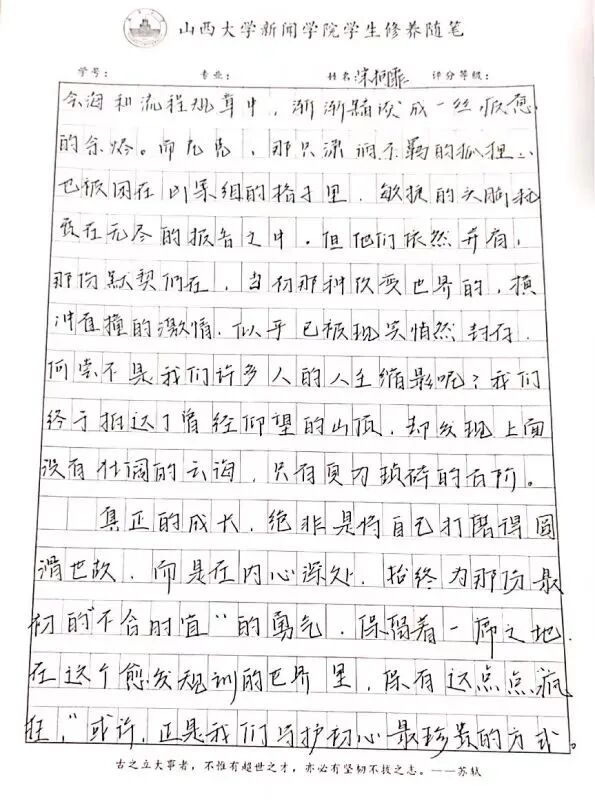 山西大学新闻学院学生修养随笔
学号： 专业： 姓名： 评分等级：
会海和流程规章中，渐渐黯淡成一丝疲惫
的余烬。而尼克，那只潇洒不羁的狐狸，
也被困在 组的格子里，敏捷的头脑耗
在无尽的报告之中。但他们依然并肩，
那份默契仍在，当初那种改变世界的，横
冲直撞的激情，似乎已被现实悄然封存。
何尝不是我们许多人的人生缩影呢？我们
终于抵达了曾经仰望的山顶，却发现上面
没有壮阔的云海，只有更为琐碎的台阶。
真正的成长，绝非是将自己打磨得圆
滑世故，而是在内心深处，始终为那份最
初的“不合时宜”的勇气，保留着一席之地。
在这个愈发规训的世界里，保有这点点疯
狂，”或许，正是我们守护初心最珍贵的方式。
古之立大事者，不惟有超世之才，亦必有坚韧不拔之志。——苏轼